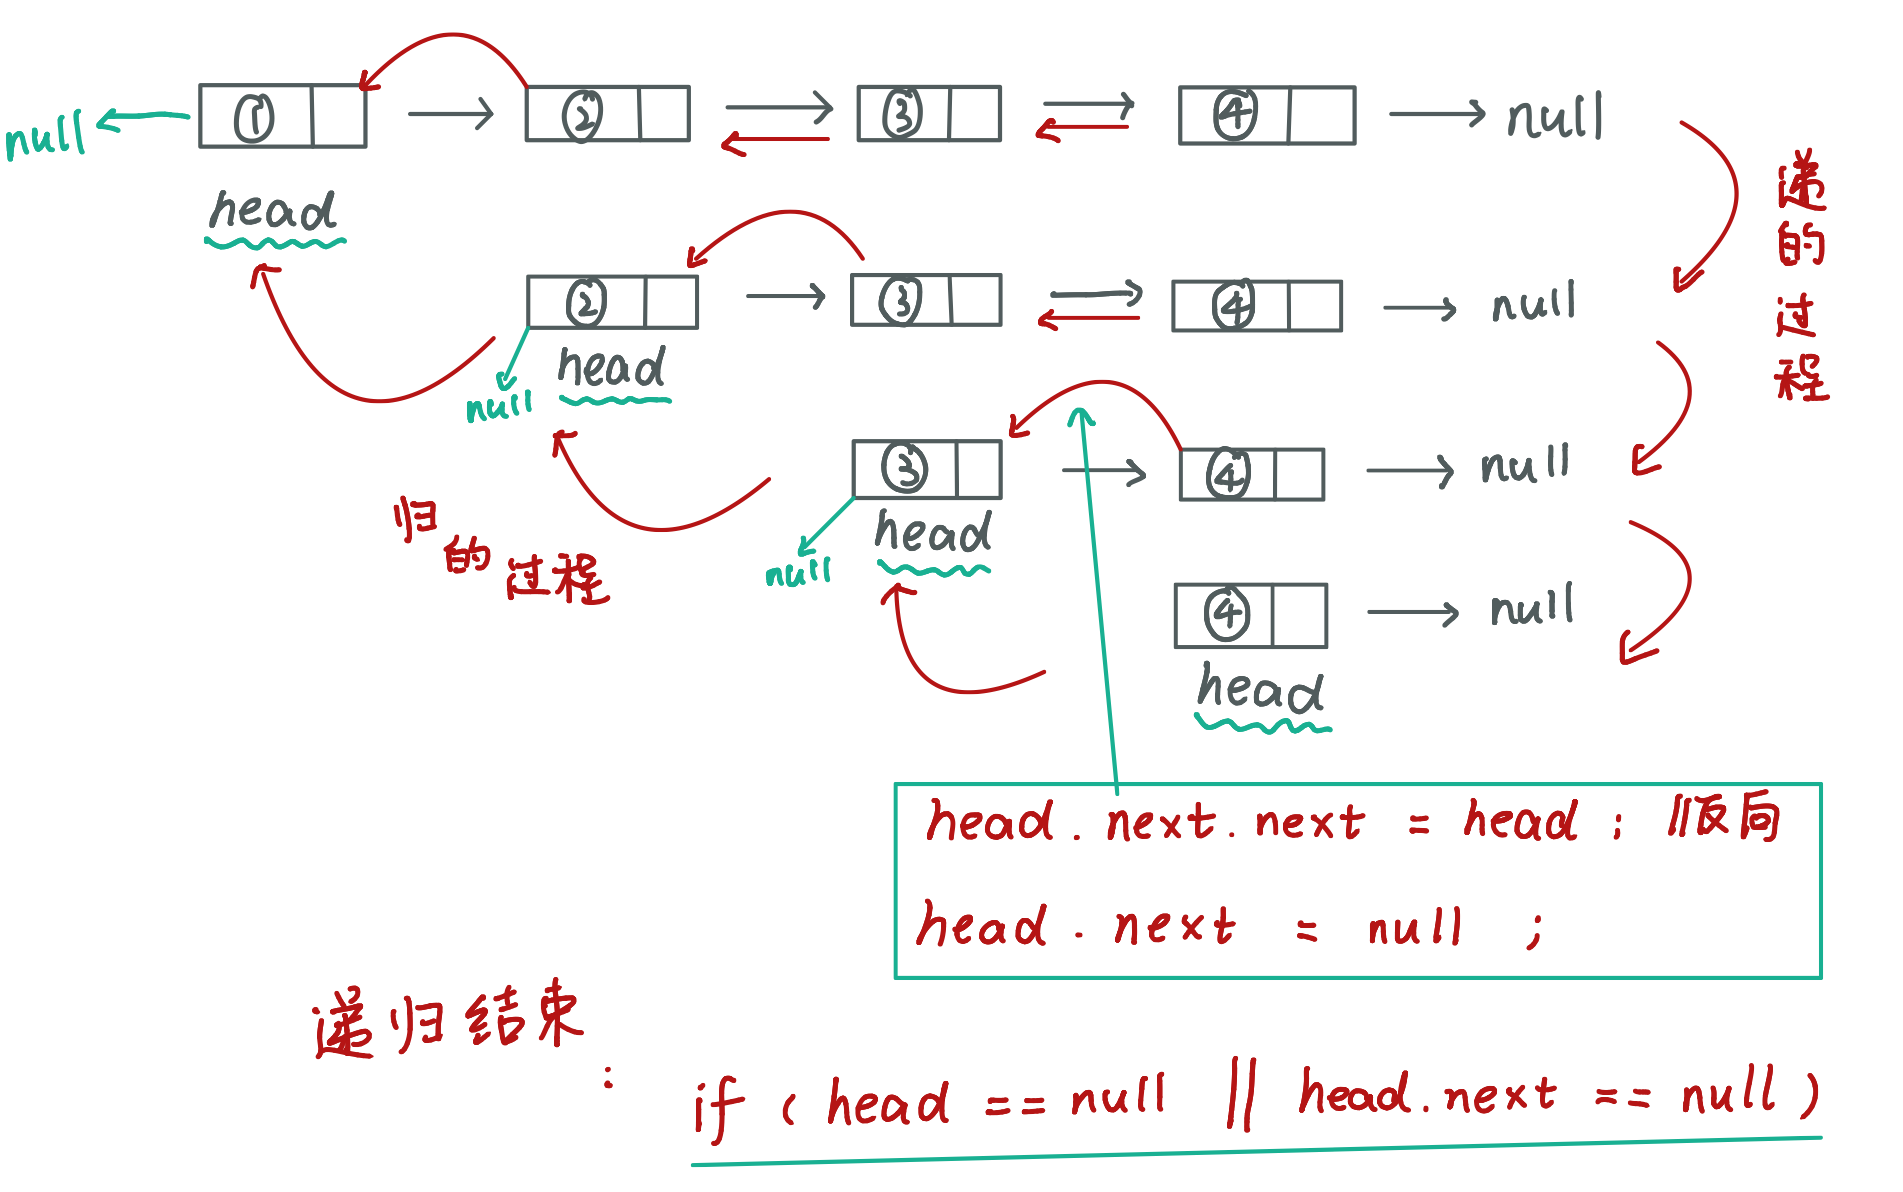 null ① ② ③ ④ null
head
② ③ ④ null
null head
③ ④ null
null head
④ null
head
递的过程
归的过程
head.next.next = head; //反向
head.next = null;
递归结束:
if (head == null || head.next == null)